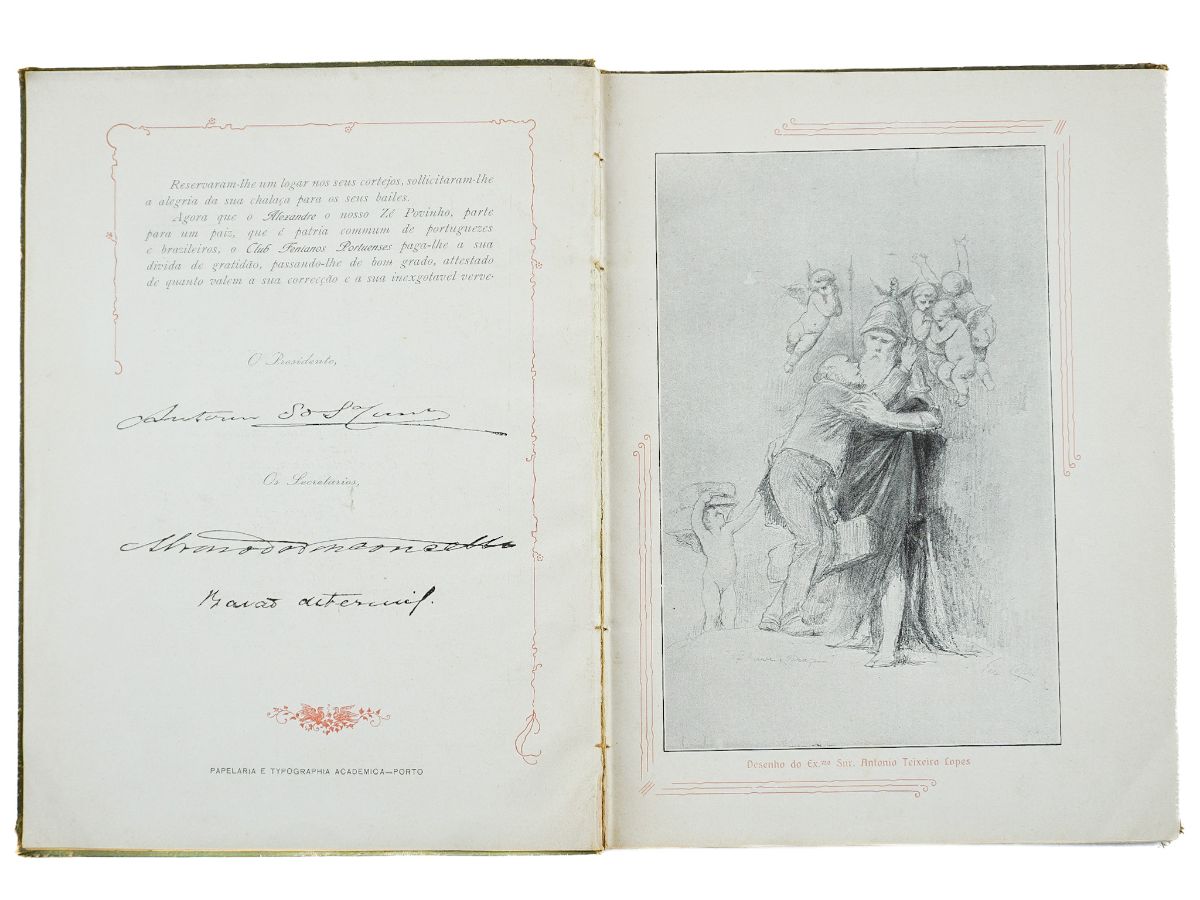 Reservaram-lhe um logar nos seus cortejos, sollicitaram-lhe
a alegria da sua chalaça para os seus bailes.
Agora que o Alexandre o nosso Zé Povinho, parte
para um paiz, que é patria commum de portuguezes
e brazileiros, o Club Fenianos Portuenses paga-lhe a sua
divida de gratidão, passando-lhe de bom grado, attestado
de quanto valem a sua correcção e a sua inexgotavel verve-
O Presidente,
Os Secretarios,
PAPELARIA E TYPOGRAPHIA ACADEMICA—PORTO
Desenho do Ex.mo Snr. Antonio Teixeira Lopes